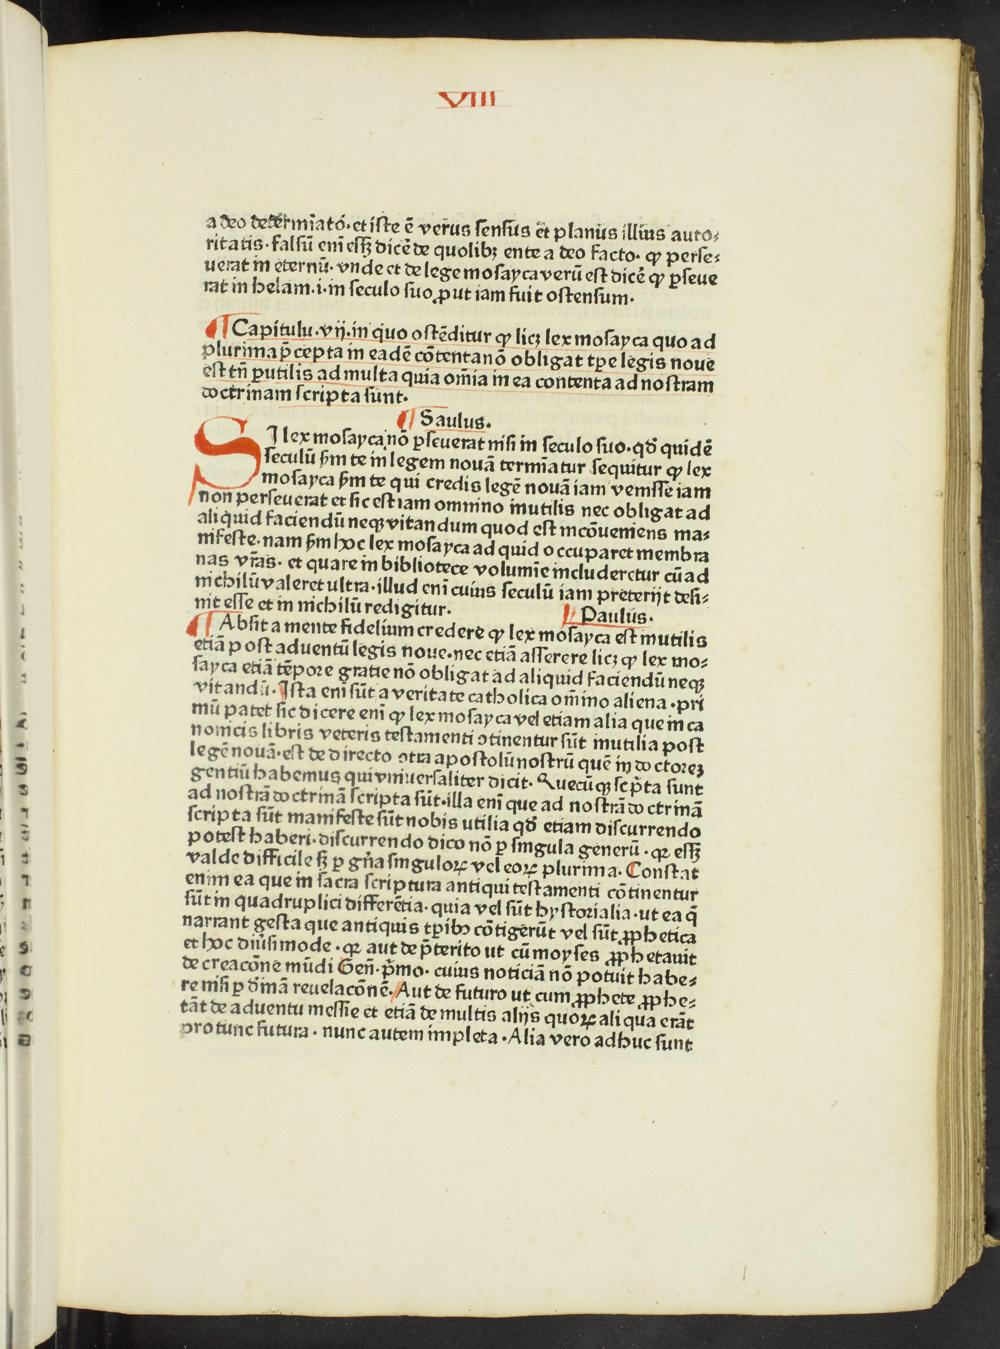 VIII
a deo determīatō· et iste ē verus sensus et planus illius auto⸗
ritatis· falsū enī essꝫ dicē de quolibꝫ ente a deo facto· ꝙ perse⸗
uerat in eternū· vnde et de lege mosayca verū est dicē ꝙ ꝑseue
rat in helam ·i· in seculo suo ꝓut iam fuit ostensum·
¶ Capitulu·vij·in quo ostēditur ꝙ licꝫ lex mosayca quo ad
plurima p̄cepta in eadē cōtenta nō obligat tp̄e legis noue
est tn̄ ꝑutilis ad multa quia om̄ia in ea contenta ad nostram
doctrinam scripta sunt·
¶ Saulus·
SI lex mosayca nō ꝑseuerat nisi in seculo suo· qd̄ quidē
seculū ẜm te in legem nouā termīatur sequitur ꝙ lex
mosayca ẜm te qui credis legē nouā iam venisse iam
non perseuerat et sic est iam omnino inutilis nec obligat ad
aliquid faciendū neqꝫ vitandum quod est incōueniens ma⸗
nifeste· nam ẜm hoc lex mosayca ad quid occuparet membra
nas vr̄as· et quare in bibliotece volumīe includeretur cū ad
nichilū valeret ultra· illud enī cuius seculū iam preterijt desi⸗
nit esse et in nichilū redigitur·
¶ Paulus·
¶ Absit a mente fidelium credere ꝙ lex mosayca est inutilis
etiā post aduentū legis noue· nec etiā asserere licꝫ ꝙ lex mo⸗
sayca etiā tēpore gratie nō obligat ad aliquid faciendū neqꝫ
vitandū· Ista enī sūt a veritate catholica om̄ino aliena· pri
mū patet sic dicere enī ꝙ lex mosayca vel etiam alia que in ea
nomicis libris veteris testamenti ↄtinentur sūt inutilia post
legē nouā· est de directo ↄtra apostolū nostrū quē in doctoreꝫ
gentiū habemus qui vniuersaliter dicit· Quecūqꝫ scp̄ta sunt
ad nostrā doctrinā scripta sūt· illa enī que ad nostrā doctrinā
scripta sūt manifeste sūt nobis utilia qd̄ etiam discurrendo
potest haberi· discurrendo dico nō ꝑ singula generū· qꝛ essꝫ
valde difficile sꝫ ꝑ gn̄a singuloꝝ vel eoꝝ plurima· Constat
enim ea que in sacra scriptura antiqui testamenti cōtinentur
sūt in quadruplici differētia· quia vel sūt hystorialia· ut ea q̄
narrant gesta que antiquis tp̄ibꝫ cōtigerūt vel sūt ꝓphetica
et hoc diūsimode· qꝛ aut de p̄terito ut cū moyses ꝓphetauit
de creacōne mūdi Gen̄· p̄mo· cuius noticiā nō potuit habe⸗
re nisi ꝑ diīnā reuelacōnē· Aut de futuro ut cum ꝓphete ꝓphe⸗
tāt de aduentu messie et etiā de multis alijs quoꝝ aliqua erāt
pro tunc futura· nunc autem impleta· Alia vero adhuc sunt